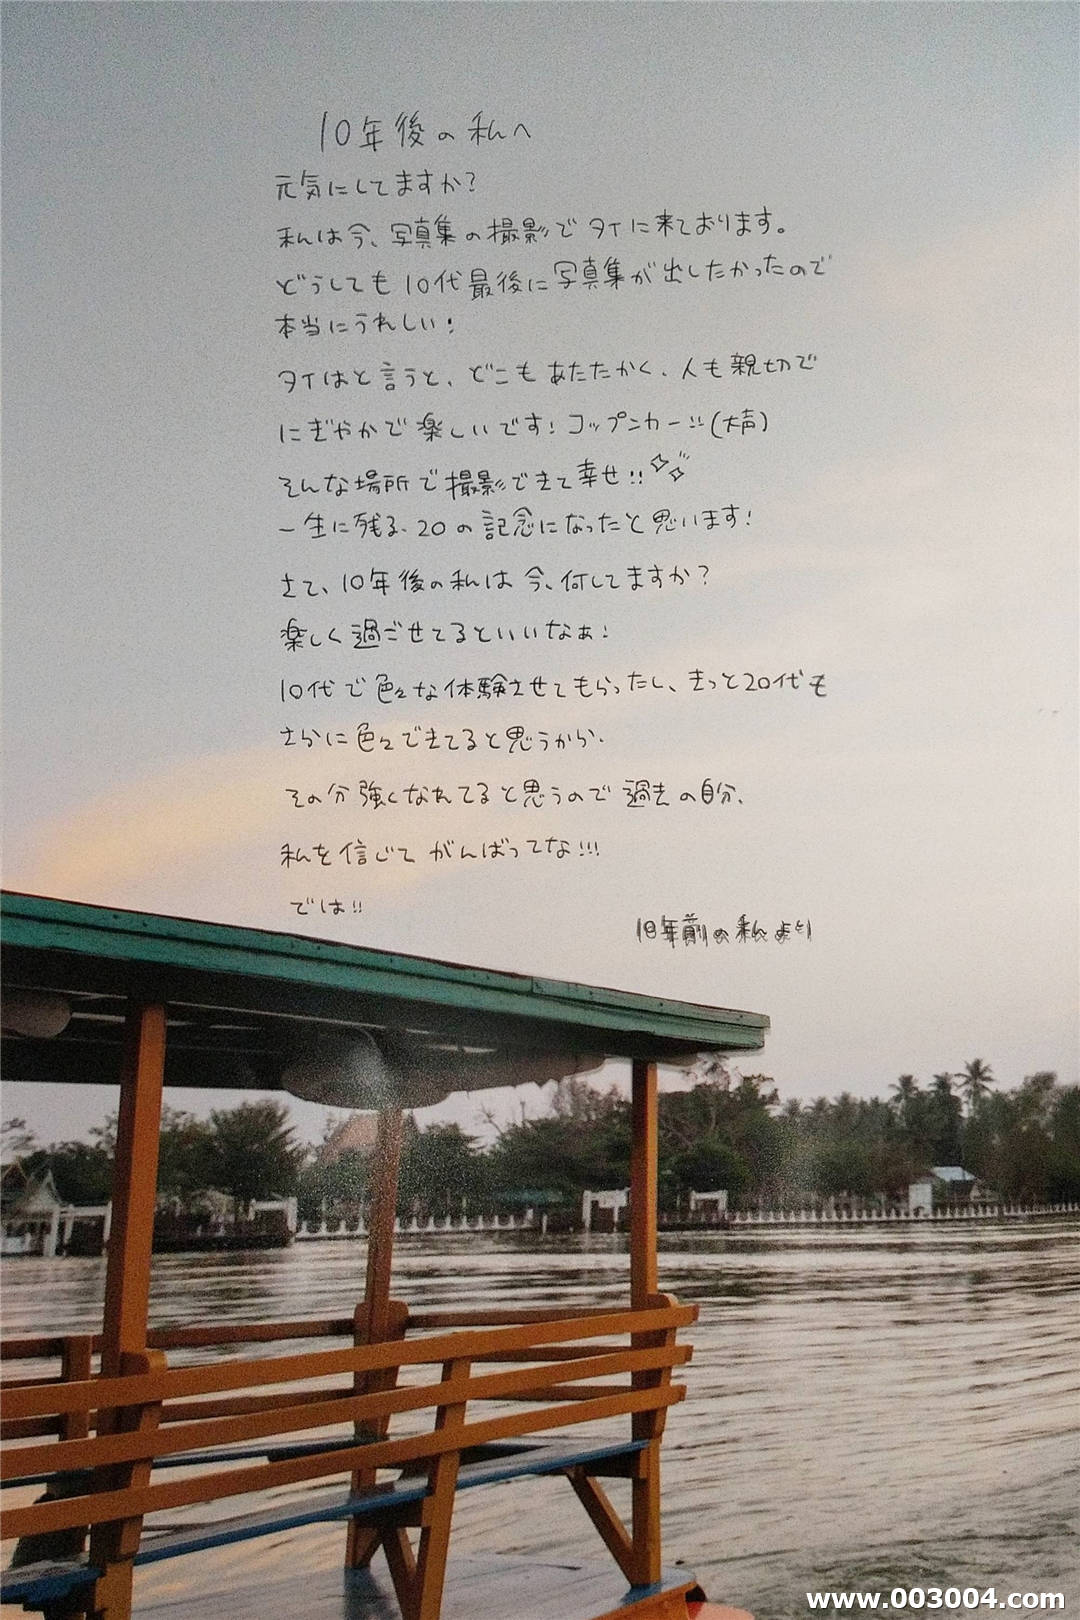 10年後の私へ
元気にしてますか?
私は今、写真集の撮影でタイに来ております。
どうしても10代最後に写真集が出したかったので
本当にうれしい!
タイはと言うと、どこもあたたかく、人も親切で
にぎやかで楽しいです!コップンカー!!(大声)
そんな場所で撮影できて幸せ!!
一生に残る、20の記念になったと思います!
さて、10年後の私は今、何してますか?
楽しく過ごせてるといいなぁ!
10代で色々な体験させてもらったし、きっと20代も
さらに色々できてると思うから、
その分強くなれてると思うので過去の自分、
私を信じてがんばってな!!!
では!!
10年前の私より
www.003004.com